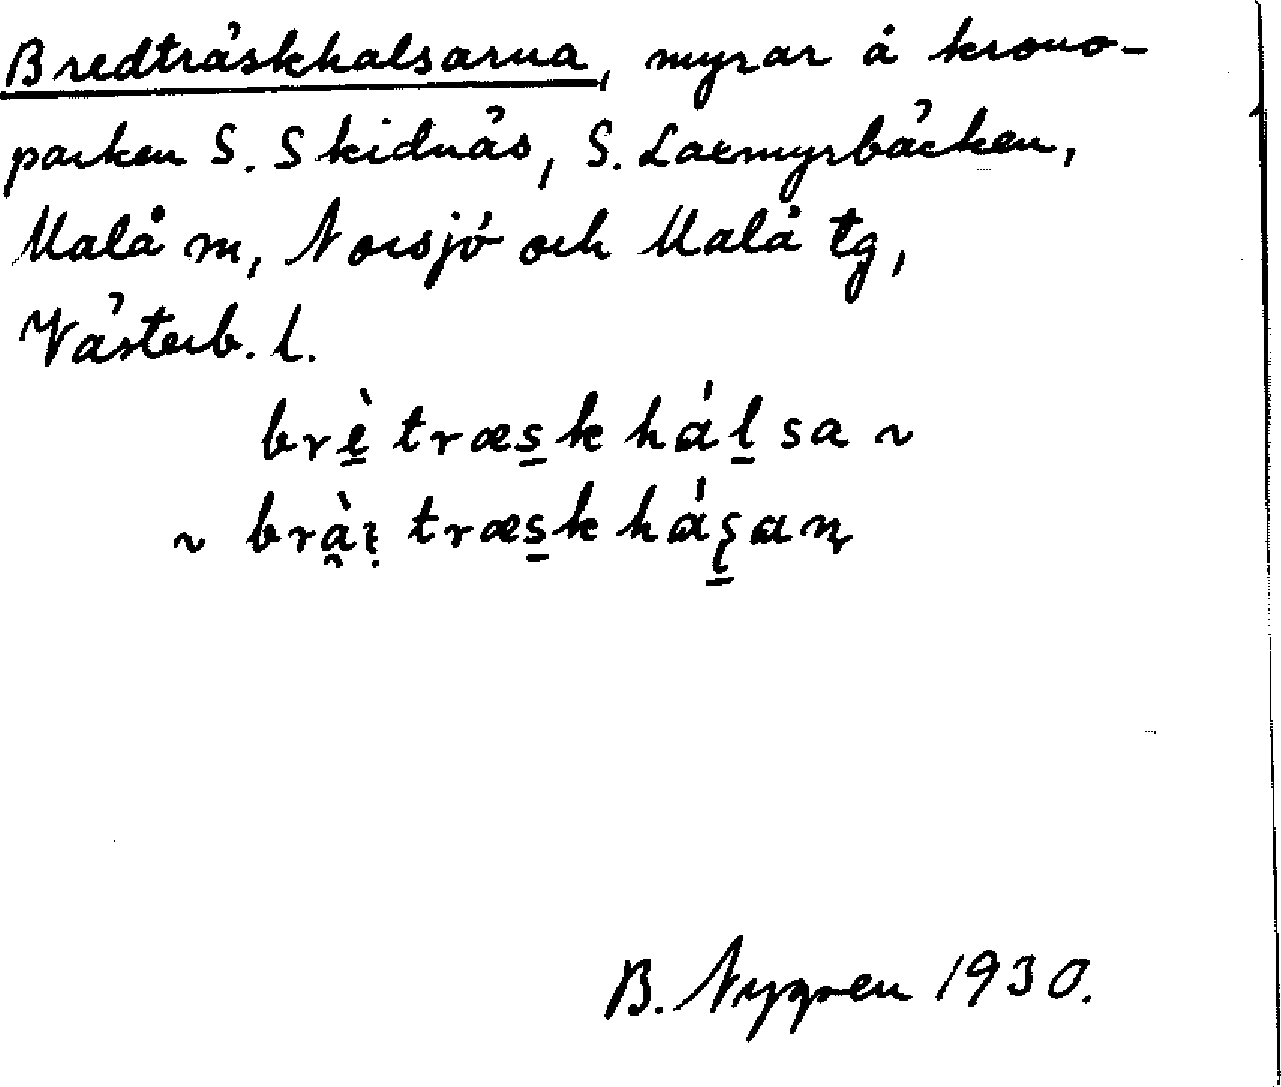 Bredträskhalsarna, myrar å krono-
parken S. Skidnäs, S. Laxmyrbäcken,
Malå m, Norsjö och Malå tg,
Västerb. l.
brè̱ træs̱k háḻsa ~
~ brà̯ı̣ træs̱k háʂan̨
B. Nygren 1930.